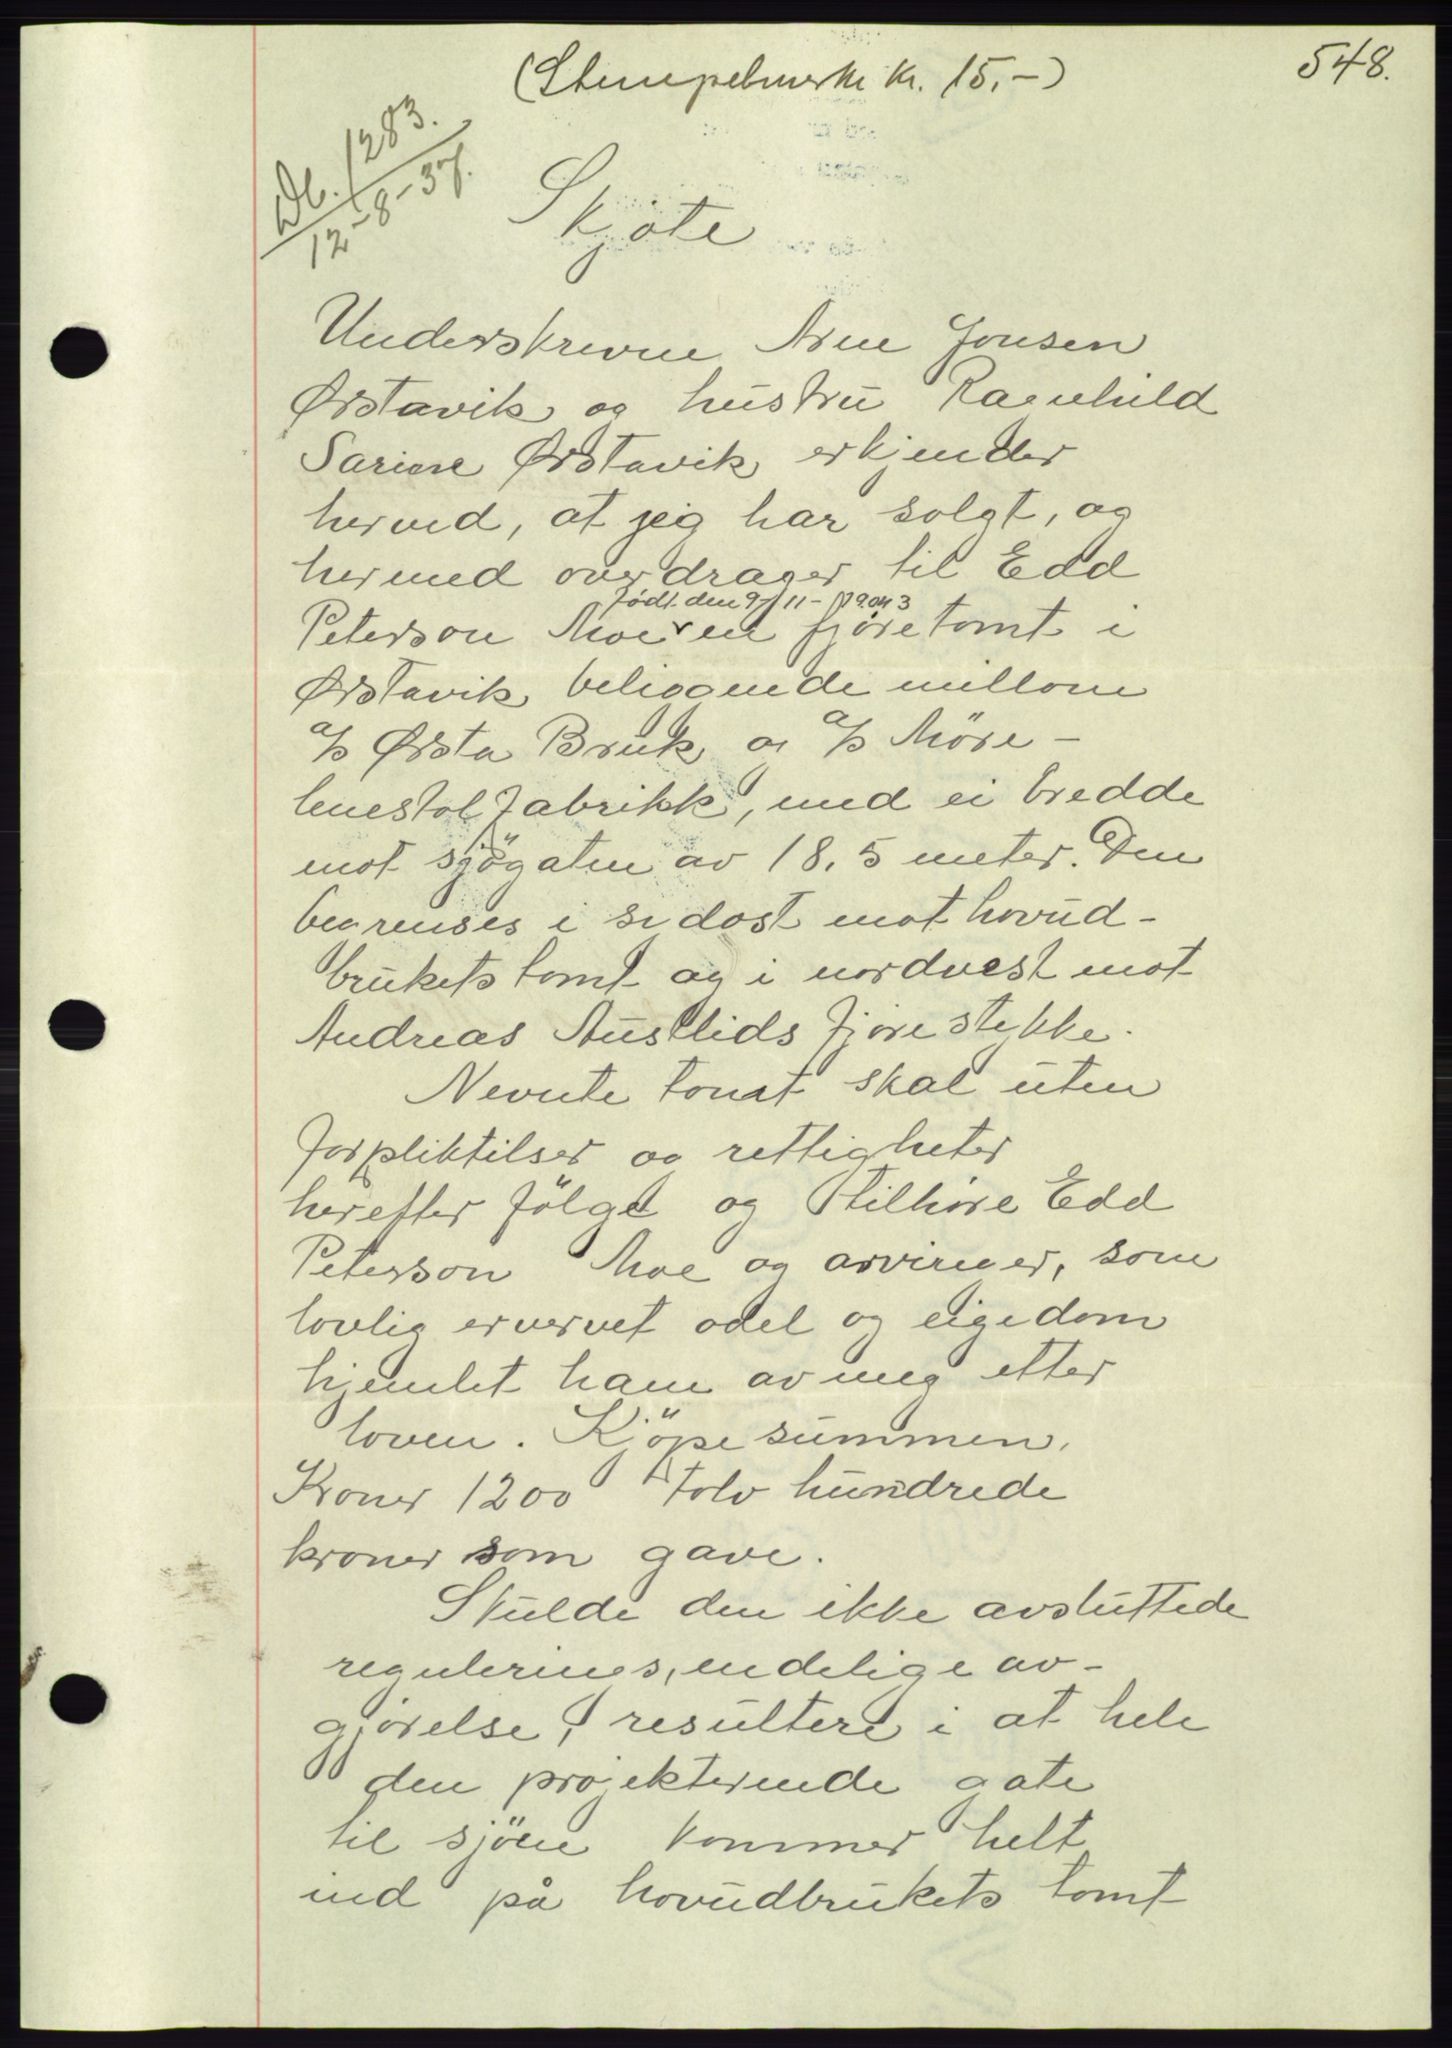 548.
(Stempelmerke kr. 15.-)
Db. 1283.
12-8-37.
Skjøte
Underskrevne Arne Jonsen
Ørstavik og hustru Ragnhild
Sarine Ørstavik erkjender
herved, at jeg har solgt, og
hermed overdrager til Edd
født den 9/11-1903
Peterson Moe en fjøretomt i
Ørstavik beliggende millom
a/s Ørsta Bruk og a/s Møre-
lenestolfabrikk, med ei bredde
mot sjøgaten av 18.5 meter. Den
begrenses i sydost mot hovud-
brukets tomt og i nordvest mot
Andreas Austlids fjørestykke.
Nevnte tomt skal uten
forpliktilser og rettigheter
herefter følge og tilhøre Edd
Peterson Moe og arvinger, som
lovlig ervervet odel og eigedom
hjemlet ham av meg etter
loven. Kjøpesummen,
Kroner 1200 tolv hundrede
kroner som gave.
Skulde den ikke avsluttede
regulerings, endelige av-
gjørelse, resultere i at hele
den projekterende gate
til sjøen kommer helt
ind på hovudbrukets tomt